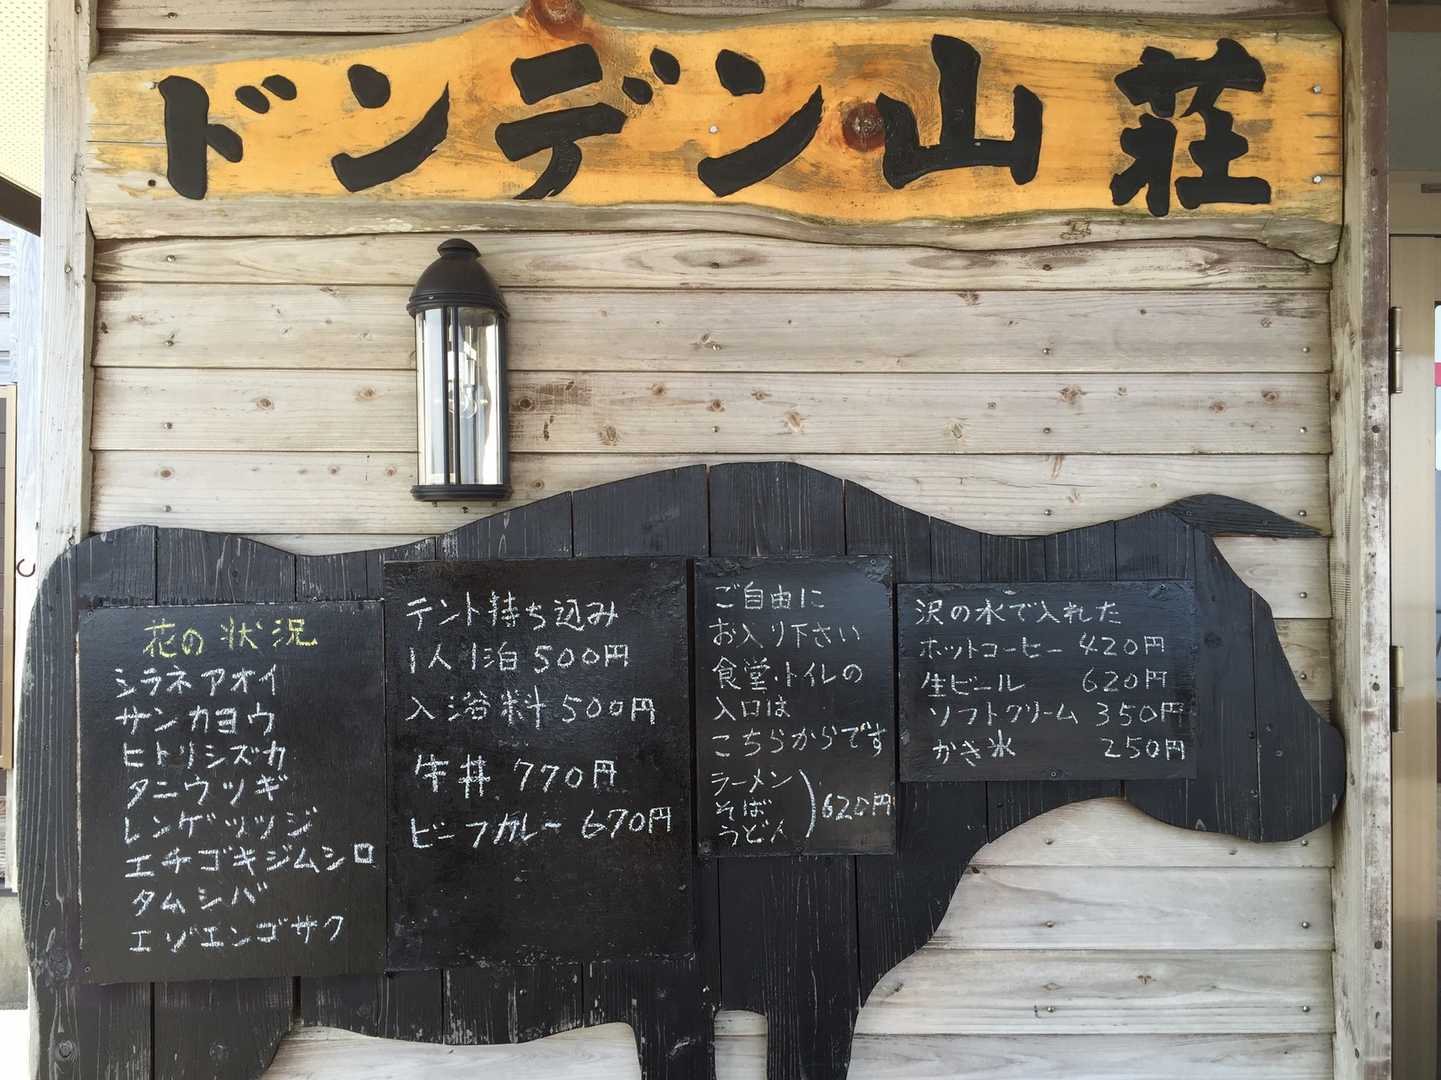 ドンデン山荘
花の状況
シラネアオイ
サンカヨウ
ヒトリシズカ
タニウツギ
レンゲツツジ
エチゴキジムシロ
タムシバ
エゾエンゴサク
テント持ち込み
1人1泊 500円
入浴料 500円
牛丼 770円
ビーフカレー 670円
ご自由に
お入り下さい
食堂・トイレの
入口は
こちらからです
ラーメン
そば
うどん
620円
沢の水で入れた
ホットコーヒー 420円
生ビール 620円
ソフトクリーム 350円
かき氷 250円